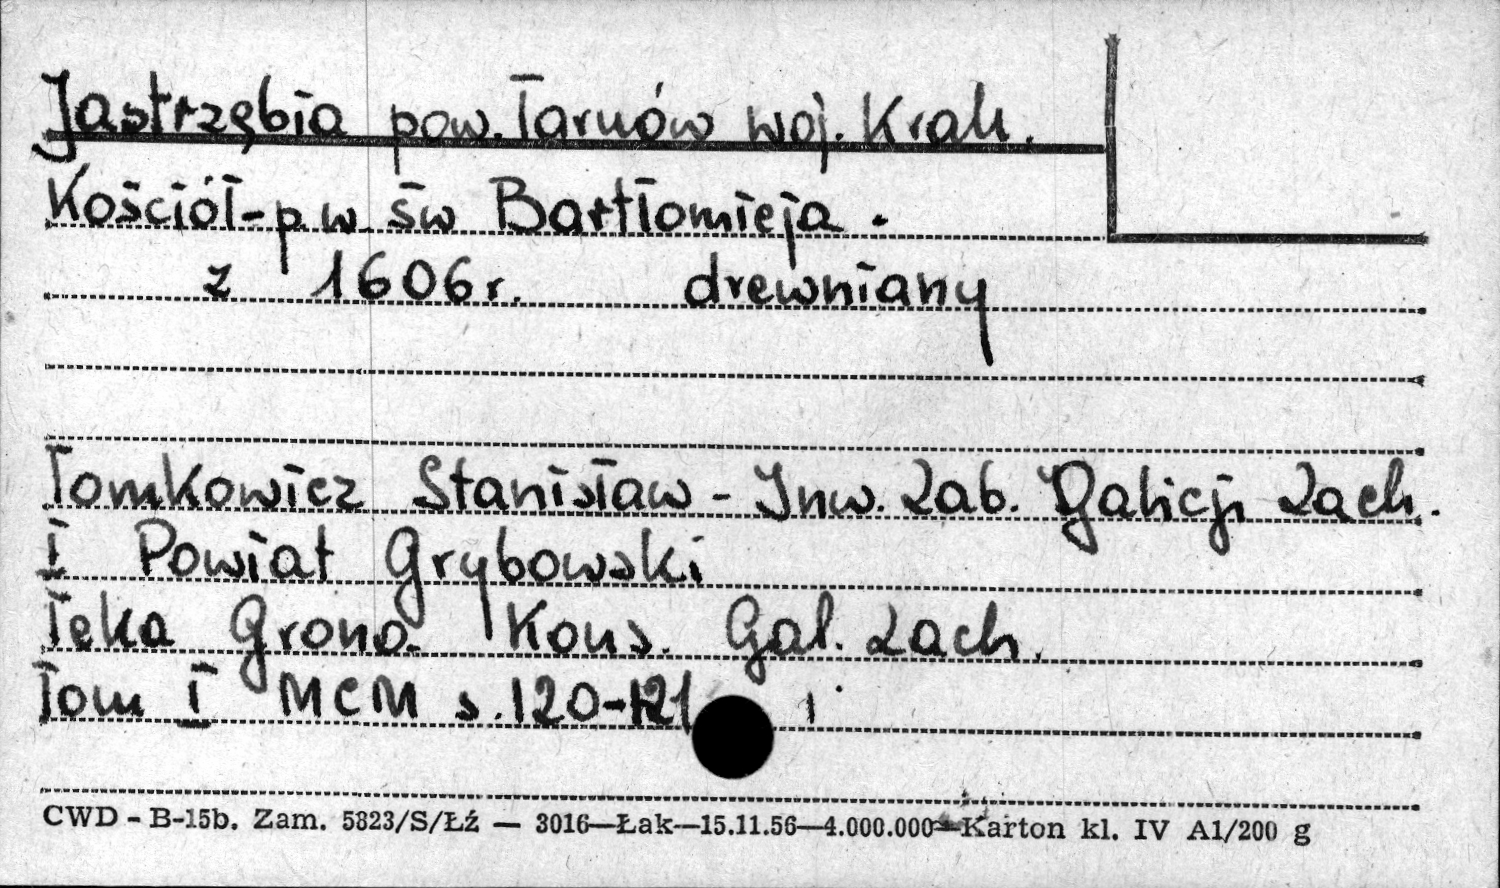 Jastrzębia pow. Tarnów woj. Krak.
Kościół - p.w. św Bartłomieja.
z 1606 r. drewniany
Tomkowicz Stanisław - Inw. Zab. Galicji Zach.
I Powiat Grybowski
Teka Grona. Kons. Gal. Zach.
Tom I MCM s. 120-121 i
CWD - B-15b. Zam. 5823/S/Łź — 3016—Łak—15.11.56—4.000.000—Karton kl. IV A1/200 g